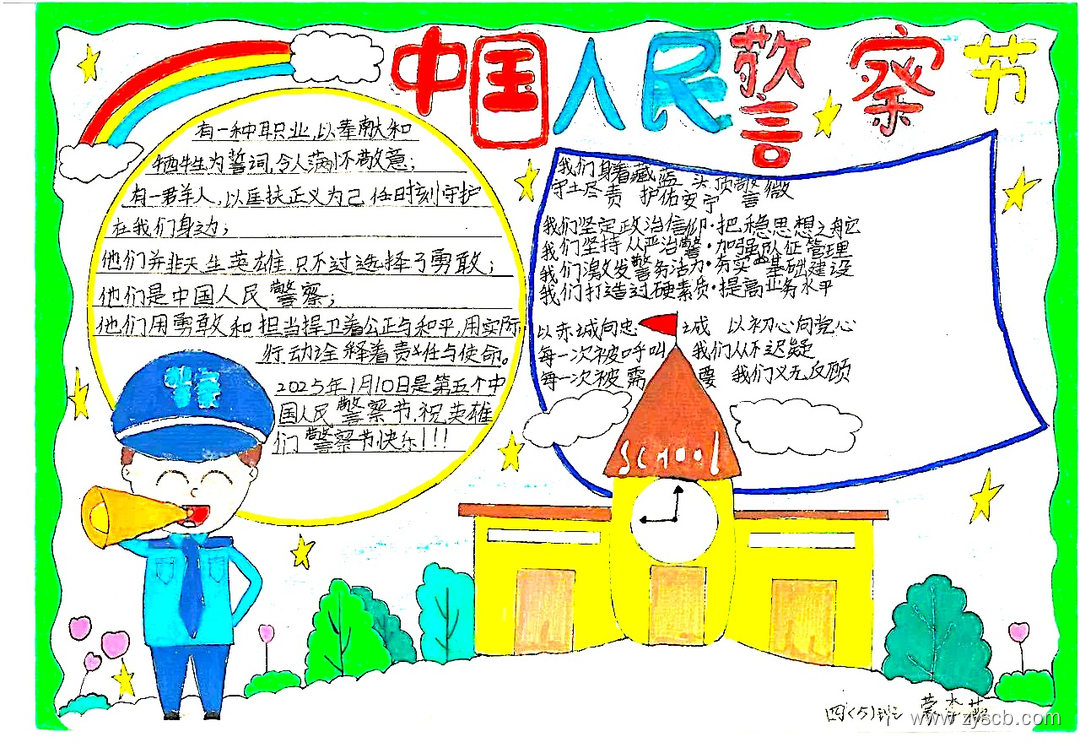 中国人民警察节
有一种职业,以奉献和
牺牲为誓词,令人满怀敬意;
有一群人,以匡扶正义为己任时刻守护
在我们身边;
他们并非天生英雄只不过选择了勇敢;
他们是中国人民警察;
他们用勇敢和担当捍卫着公正与和平,用实际
行动诠释着责任与使命。
2025年1月10日是第五个中
国人民警察节.祝英雄
们警察节快乐!!!
我们身着藏蓝 头顶警徽
守土尽责 护佑安宁
我们坚定政治信仰·把稳思想之舵
我们坚持从严治警·加强队伍管理
我们激发警务活力·夯实基础建设
我们打造过硬素质·提高业务水平
以赤诚向忠诚 以初心向党心
每一次被呼叫 我们从不迟疑
每一次被需要 我们义无反顾
SCHOOL
四(5)班
www.zyscb.com